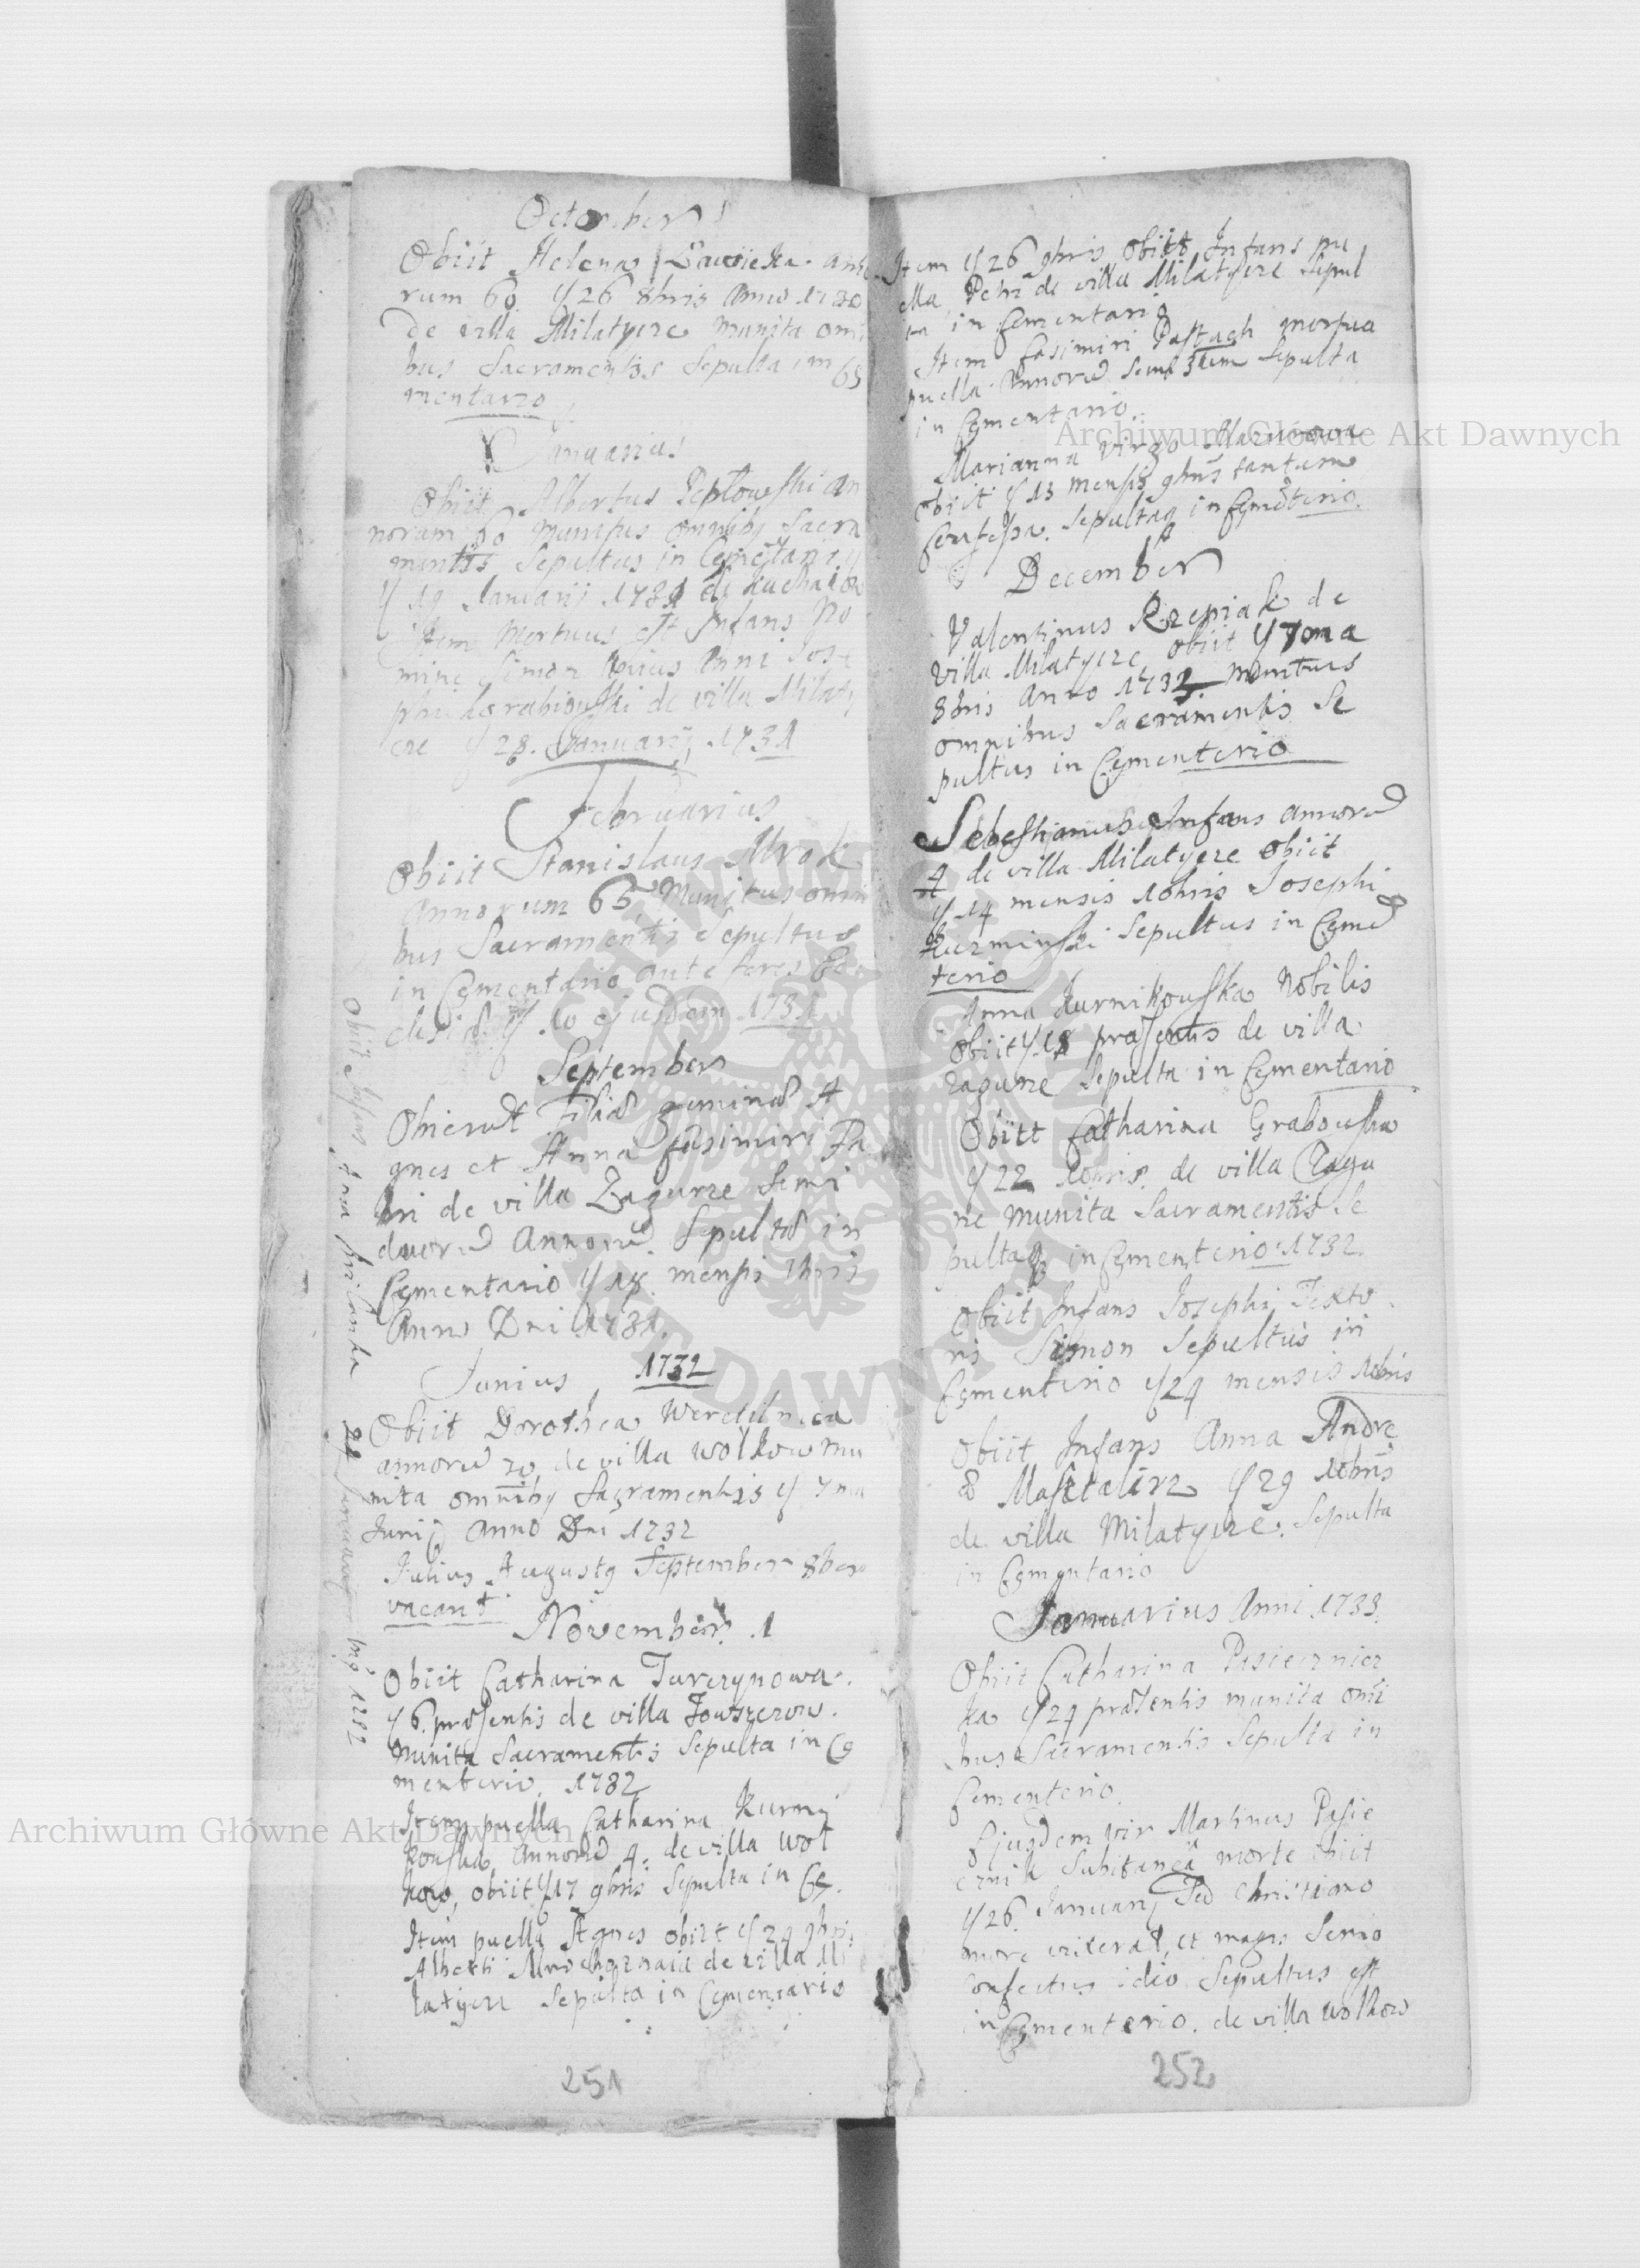 October
Obiit Helena Lawicka anno
rum 60 26 8bris Anno 1730
de villa Milatycze munita omni
bus Sacramentis Sepulta in Ce
mentario
Januarius
Obiit Albertus an
norum 60 Munitus omnibus Sacra
mentis Sepultus in Cemetario
19 Januarii 1731 de
Item Mortuus est Infans No
mine Simon unius Anni Jose
phi Grabiowski de villa Milaty
cze 28. Januarij 1731
Februarius
Obiit Stanislaus Mrok
annorum 65 Munitus omni
bus Sacramentis Sepultus
in Cementario ante fores Ec
clesiae 10 ejusdem 1731
September
Obierut Filiae geminae A
gnes et Anna Casimiri Pa
de villa Zagurze Semi
duorum Annorum Sepultae in
Cementario 18. mensis 7bris
Anno Dni 1731.
Junius 1732
Obiit Dorothea
annorum 70 de villa Wolkow mu
nita omnibus Sacramentis 7ma
Junij Anno Dni 1732
Julius Augustus September 8ber
vacant
November 1
Obiit Catharina Turczynowa.
6. praesentis de villa Towszczow.
Munita Sacramentis Sepulta in Ce
menterio. 1732
Item puella Catharina Kurni
kowska annorum 4. de villa Wol
kow, obiit 17 9bris Sepulta in Ce.
Item puella Agnes obiit 24 9bris
Alberti de villa Mi
latycze Sepulta in Cementario
251
Obiit Infans 24 Januarij 1732
Item 26 9bris Obiit Infans pu
ella Petri de villa Milatycze Sepul
ta in Cementario
Item Casimiri Pastuch mortua
puella Annorum Semi 3um Sepulta
in Cementario.
Marianna Virgo Mazurowa
obiit 13 mensis 9bris tantum
Confessa. Sepulta in Cemeterio.
December
Valentinus Rzepiak de
villa Milatycze obiit 7ma
Xbris Anno 1732. munitus
omnibus Sacramentis Se
pultus in Cementerio
Sebestianus Infans annorum
4 de villa Milatycze obiit
14 mensis Xbris Josephi
Kuzminski Sepultus in Ceme
terio
Anna Kurnikowska Nobilis
Obiit 18 praesentis de villa
Zagurze Sepulta in Cementario
Obiit Catharina Grabowska
22 Xbris. de villa Zagu
rze munita Sacramentis Se
pulta in Cementerio 1732.
Obiit Infans Josephi Texto
ris Simon Sepultus in
Cementerio 24 mensis Xbris
Obiit Infans Anna Andre
ae Masztalirz 29 Xbris
de villa Milatycze. Sepulta
in Cementario
Januarius Anni 1733.
Obiit Catharina Pasiecznicz
ka 24 praesentis munita omni
bus Sacramentis Sepulta in
Cementerio.
Ejusdem vir Martinus Pasie
cznik Subitanea morte obiit
26. Januarij Sed Christiano
more vixerat, et magis Senio
confectus ideo Sepultus est
in Cementerio. de villa Wolkow
252
Archiwum Główne Akt Dawnych
Archiwum Główne Akt Dawnych